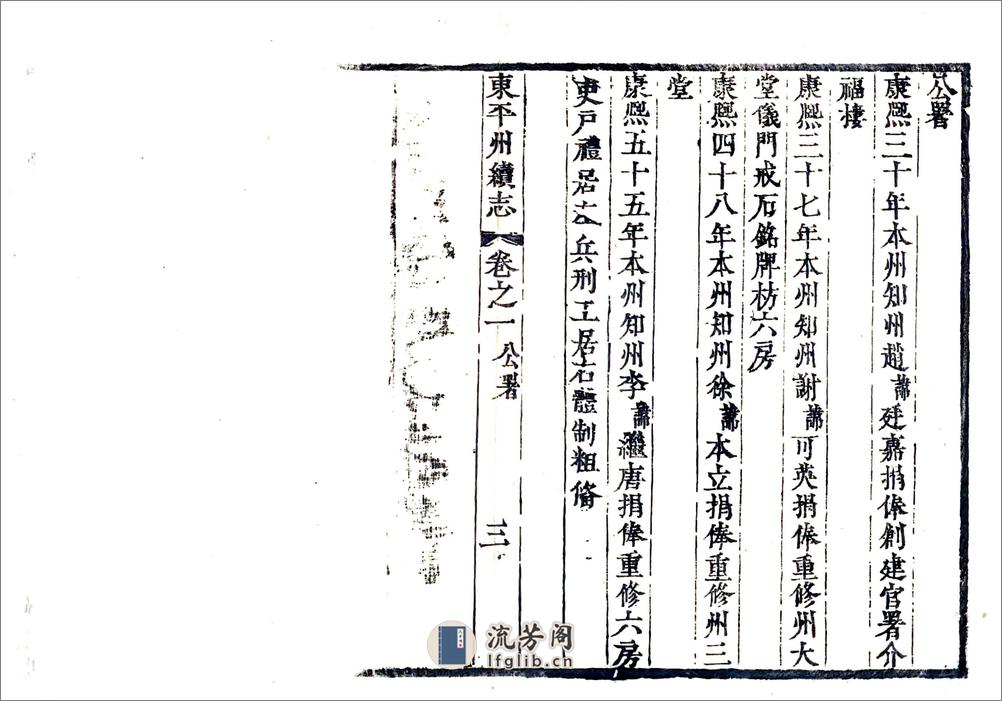 公署
康熙三十年本州知州趙諱廷嘉捐俸創建官署介
福棲
康熙三十七年本州知州謝諱可英捐俸重修州大
堂儀門戒石銘牌枋六房
康熙四十八年本州知州徐諱本立捐俸重修州三
堂
康熙五十五年本州知州李諱繼唐捐俸重修六房
吏戶禮居左兵刑工居右體制粗脩
東平州續志 卷之一 公署 三
流芳阁
lfglib.cn